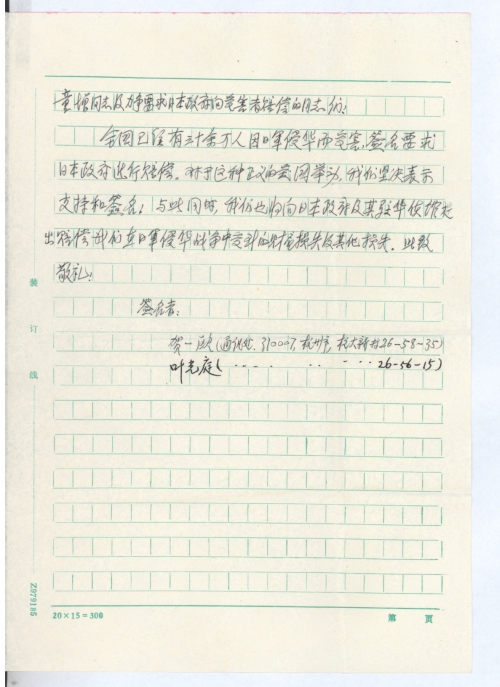 童增同志及力争要求日本政府向受害者赔偿的同志们：
全国已经有三十余万人因日军侵华而受害，签名要求
日本政府进行赔偿。对于这种正义的爱国举动，我们坚决表示
支持和签名；与此同时，我们也将向日本政府及其驻华使馆提
出赔偿我们在日军侵华战争中受到的财产损失及其他损失。此致
敬礼！
签名者：
贺一欧（通讯处：310007，杭州市，杭大新村26-58-35）
叶光庭（‥‥ ‥ ‥‥ 26-56-15）
装
订
线
Z979185
20×15=300
第 页